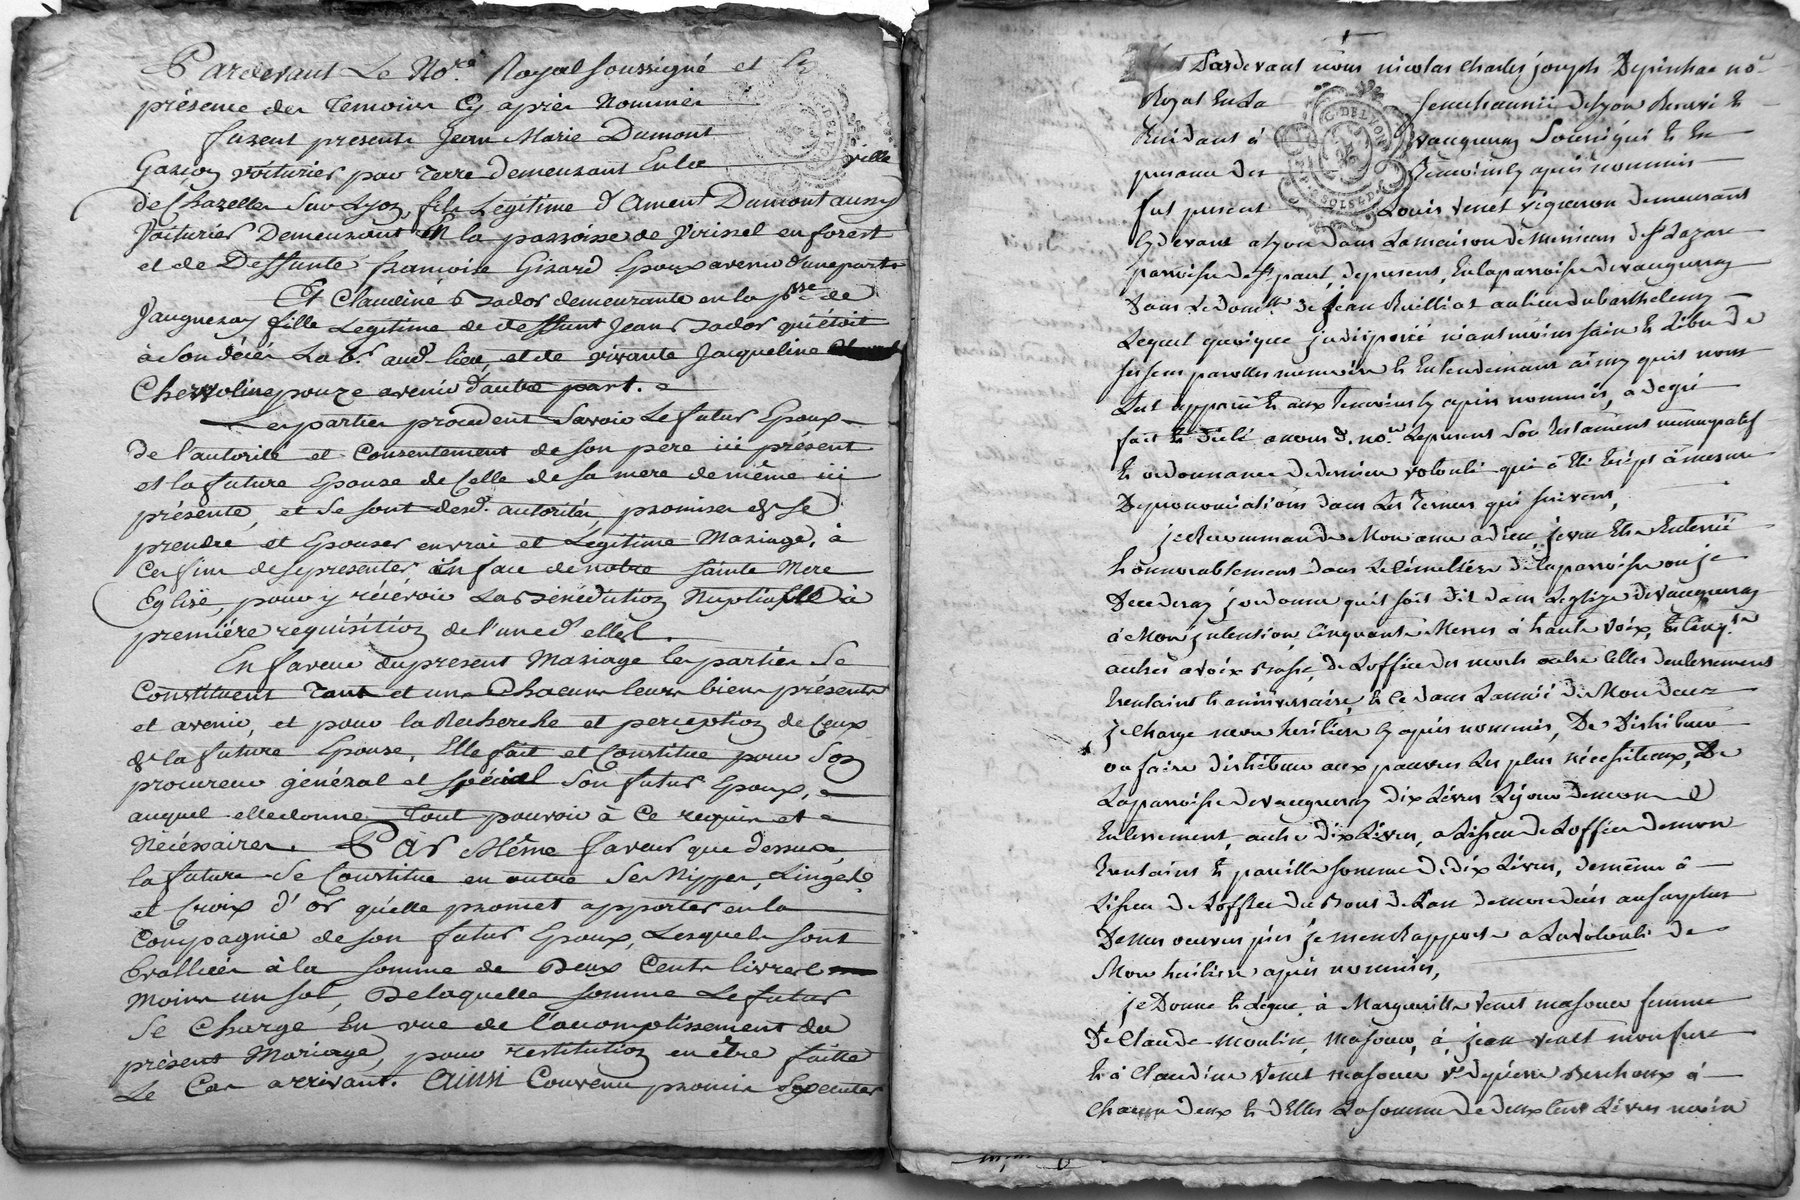 Pardevant Le No.re Royal soussigné et En
présence des Temoins Cy après Nommés
furent presents Jean Marie Dumont
Garçon voiturier par Terre demeurant En la ville
de Chazelle sur Lyon, fils Légitime d'Ament Dumont aussy
Voiturier Demeurant en la parroisse de Viricel en forest
et de Deffunte françoise Girard Epoux avenir d'une part
Et Claudine demeurante en la psse de
Vaugneray fille Légitime de deffunt Jean qui étoit
à son décés Lab.r aud. lieu, et de vivante Jacqueline
epouze avenir d'autre part.
Les parties procedent savoir Le futur Epoux
de l'autorité et Consentement de son pere ici présent
et la future Epouse de Celle de sa mere de même ici
présente, et se sont desd. autorités, promises de se
prendre et Epouser en vrai et Légitime Mariage, à
Ces fins de se presenter en face de notre sainte Mere
Eglise, pour y récévoir La Bénédiction Nuptialle à
premiére requisition de l'un e d'elles.
En faveur du present Mariage les parties Se
Constituent Tous et uns Chacuns leurs biens présents
et avenir, et pour la Recherche et perception de Ceux
de la future Epouse, Elle fait et Constitue pour Son
procureur général et spécial Son futur Epoux,
auquel elle donne Tout pouvoir à Ce requis et
Nécéssaires. Par Même faveur que dessus
la future Se Constitue en outre Ses Nippes, Linges
et Croix d'or qu'elle promet apporter en la
Compagnie de son futur Epoux, Lesquels sont
Evallués à la somme de Deux Cents livres
moins un sol, De laquelle somme Le futur
Se Charge En vue de l'acomplissement du
présent Mariage, pour restitution en être faitte
Le Cas arrivant. Ainsi Convenu promis d'executer
Pardevant nous nicolas charles joseph no.
Royal En La senechaussée de Lyon Reservé Et
Residant à vaugneray Soussigné Et En
presence des Temoins Cy après nommés
fut present Louis venet vigneron demeurant
Cy devant a Lyon dans La maison de Messieurs de St Lazare
parroisse de St paul, de present, En la parroisse de vaugneray
Dans Le dom.lle de Jean au lieu du barthelemy
Lequel quoique indisposé neantmoins sain Et Libre de
ses sens parolles memoire Et Entendement ainsy quil nous
Est apparu Et aux Temoins Cy après nommés, a de gré
fait Et dicté a nous d. no.re Le present Son testament nuncupatif
Et ordonnance de derniere volonté qui a Eté Ecript à mesure
De prononciations dans Les Termes qui suivent,
je Recommande Mon ame à dieu, je veux Etre Enterré
honnorablement dans Le Cimetière de la parroisse ou je
Decederay j'ordonne quil soit dit dans Leglise de vaugneray
à Mon jntention, Cinquante Messes à haute voix, Et Cinq.te
autres a voix Basse, de Loffice des morts outre Celles denterrement
trentains Et anniversaire, Et Ce dans L'année de Mon deces
je Charge mon heritiere Cy après nommée, De Distribuer
ou faire distribuer aux pauvres Les plus nécessiteux, De
La parroisse de vaugneray dix Livres Le jour de mon
Enterrement, autre dix Livres, a L'issue de L'office de mon
trentains Et pareille somme de dix Livres, de même à
L'issue de L'office du Bout de L'an de mon décés au surplus
De mes oeuvres pies je m'en Rapporte a La volonté de
Mon heritiere après nommée,
je Donne Et Legue, à Marguerite venet ma soeur femme
De Claude moulin, ma soeur, à, jean venet mon frere
Et à Claudine venet ma soeur v.e de pierre Berchoux à
Chacun deux Et d'Elles La somme de deux Cent Livres